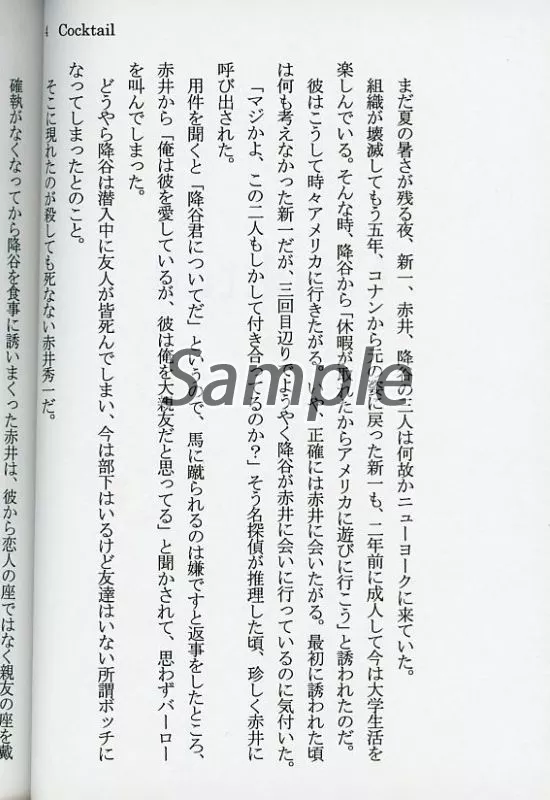 4 Cocktail
まだ夏の暑さが残る夜、新一、赤井、降谷の三人は何故かニューヨークに来ていた。
組織が壊滅してもう五年、コナンから元の姿に戻った新一も、二年前に成人して今は大学生活を
楽しんでいる。そんな時、降谷から「休暇が取れたからアメリカに遊びに行こう」と誘われたのだ。
彼はこうして時々アメリカに行きたがる。いや、正確には赤井に会いたがる。最初に誘われた頃
は何も考えなかった新一だが、三回目辺りでようやく降谷が赤井に会いに行っているのに気付いた。
「マジかよ、この二人もしかして付き合ってるのか？」そう名探偵が推理した頃、珍しく赤井に
呼び出された。
用件を聞くと「降谷君についてだ」というので、馬に蹴られるのは嫌ですと返事をしたところ、
赤井から「俺は彼を愛しているが、彼は俺を大親友だと思ってる」と聞かされて、思わずバーロー
を叫んでしまった。
どうやら降谷は潜入中に友人が皆死んでしまい、今は部下はいるけど友達はいない所謂ボッチに
なってしまったとのこと。
そこに現れたのが殺しても死なない赤井秀一だ。
確執がなくなってから降谷を食事に誘いまくった赤井は、彼から恋人の座ではなく親友の座を戴
Sample